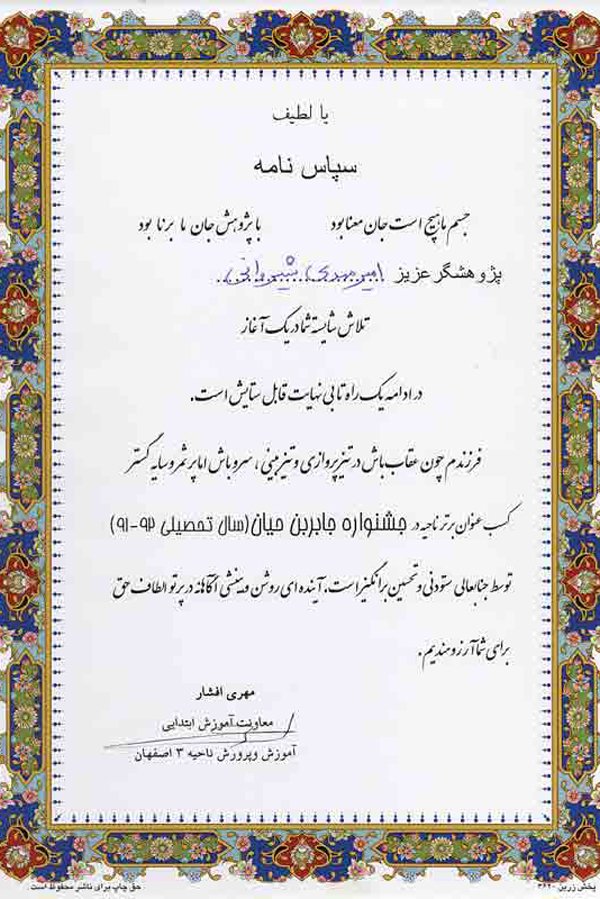 یا لطیف
سپاس نامه
جسم ما هیچ است جان معنا بود با پژوهش جان ما برنا بود
پژوهشگر عزیز امیرمهدی شیروانی
تلاش شایسته شما در یک آغاز
در ادامه یک راه تا بی نهایت قابل ستایش است.
فرزندم چون عقاب باش در تیزپروازی و تیزبینی، سرو باش اما پرثمر و سایه گستر
کسب عنوان برتر ناحیه در جشنواره جابربن حیان (سال تحصیلی ۹۲-۹۱)
توسط جنابعالی ستودنی و تحسین برانگیز است. آینده ای روشن و منشی آگاهانه در پرتو الطاف حق
برای شما آرزومندیم.
مهری افشار
معاونت آموزش ابتدایی
آموزش وپرورش ناحیه ۳ اصفهان
پخش زرین ۳۶۲۰ حق چاپ برای ناشر محفوظ است.